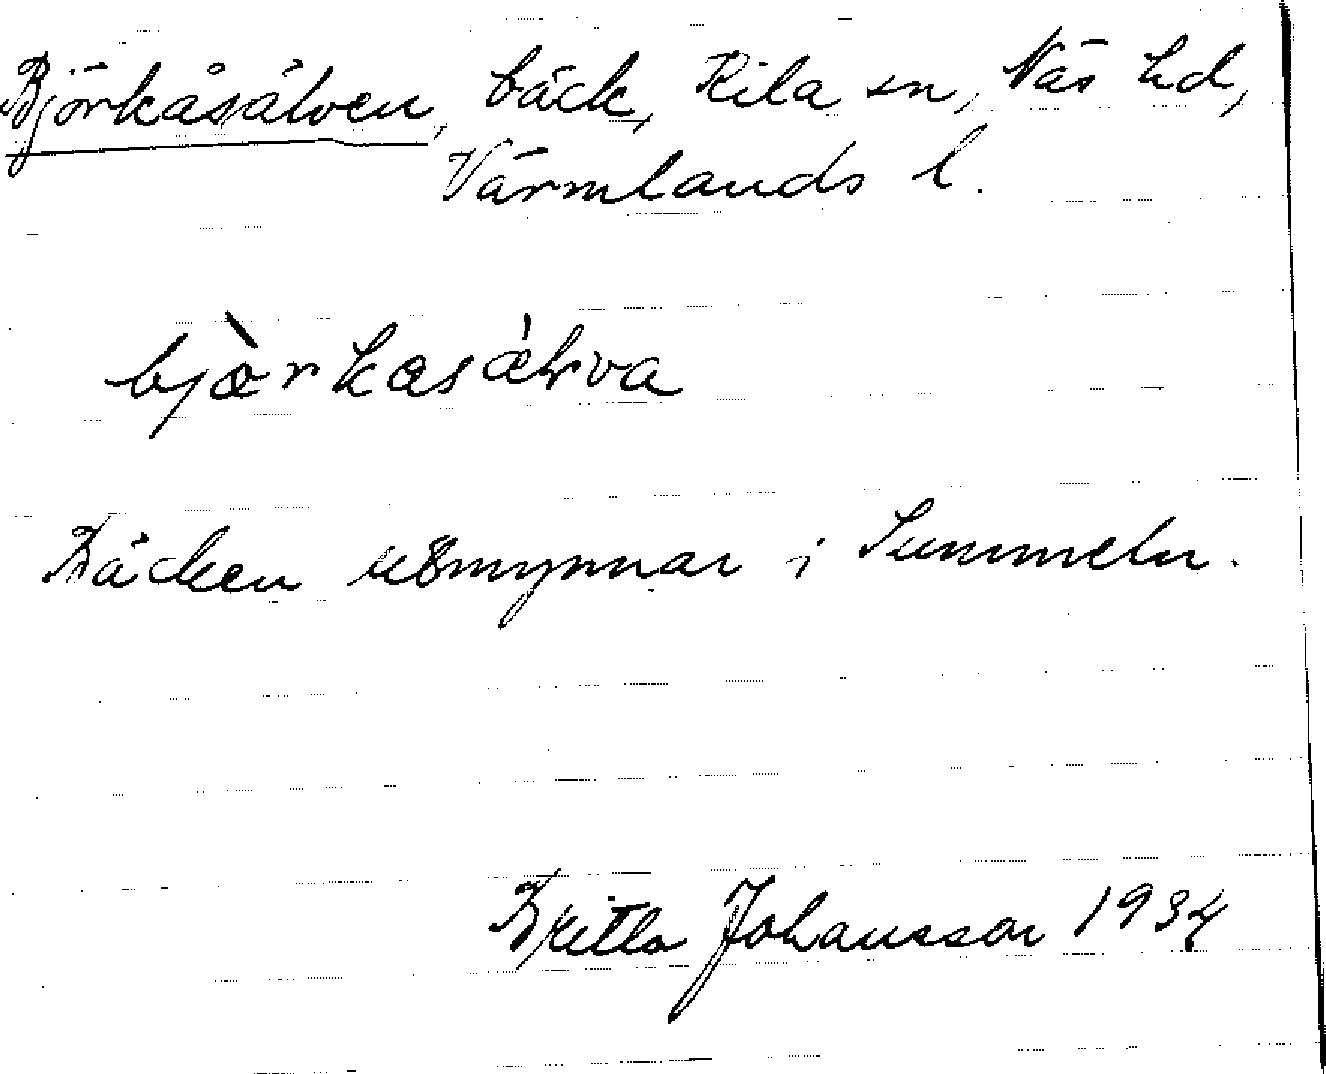 Björkåsälven, bäck, Kila sn, Näs hd,
Värmlands l.
bjæ̀rkasæ̀lva
Bäcken utmynnar i Summeln.
Britta Johansson 1934